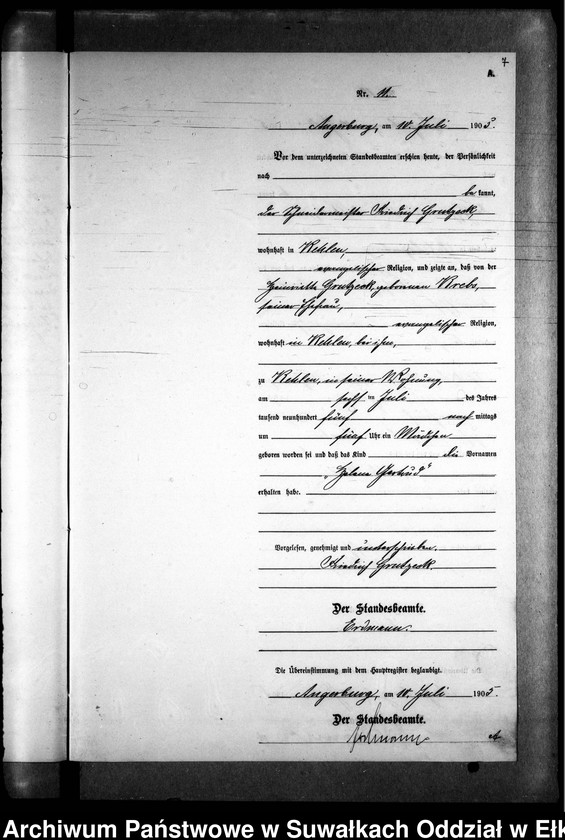 7
A.
Nr. 11.
Angerburg, am 10. Juli 1905.
Vor dem unterzeichneten Standesbeamten erschien heute, der Persönlichkeit
nach
be kannt,
der Schneidermeister Friedrich Grutzeck,
wohnhaft in Kehlen,
evangelischer Religion, und zeigte an, daß von der
Heinriette Grutzeck, geborenen Krebs,
seiner Ehefrau,
evangelischer Religion,
wohnhaft in Kehlen, bei ihm,
zu Kehlen, in seiner Wohnung,
am sechs ten Juli des Jahres
tausend neunhundert fünf nach mittags
um fünf Uhr ein Mädchen
geboren worden sei und daß das Kind die Vornamen
„Helene Gertrud"
erhalten habe.
Vorgelesen, genehmigt und unterschrieben.
Friedrich Grutzeck.
Der Standesbeamte.
Erdmann.
Die Übereinstimmung mit dem Hauptregister beglaubigt.
Angerburg, am 10. Juli 1905.
Der Standesbeamte.
Erdmann
A
Archiwum Państwowe w Suwałkach Oddział w Ełk